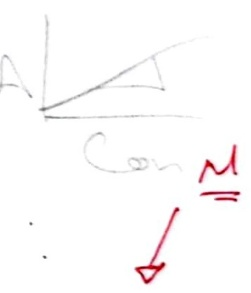 A
Con M